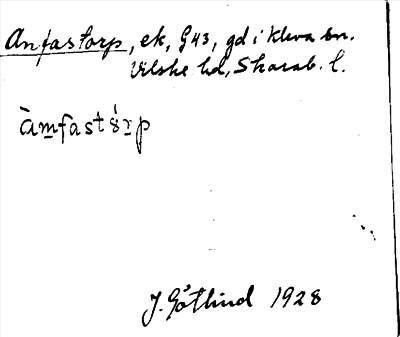 Anfastorp, ek, G 43, gd i Kleva sn.
Vilske hd, Skarab. l.
àmfastórp
J. Götlind 1928